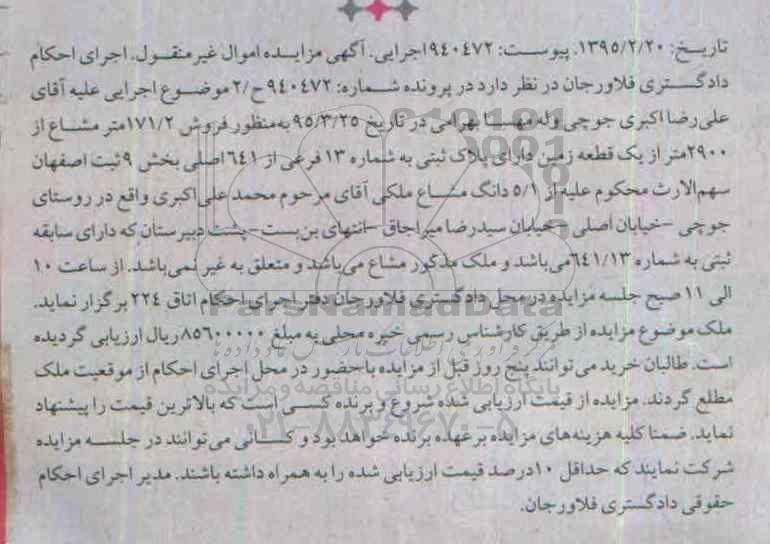 تاریخ: ۱۳۹۵/۲/۲۰. پیوست: ۹٤۰٤۷۲اجرایی. آگهی مزایده اموال غیرمنقول. اجرای احکام
دادگستری فلاورجان در نظر دارد در پرونده شماره: ۹٤۰٤۷۲ح/۲ موضوع اجرایی علیه آقای
علی‌رضا اکبری جوچی وله مهسا بهرامی در تاریخ ۹۵/۳/۲۵ به‌منظور فروش ۱۷۱/۲متر مشاع از
۲۹۰۰متر از یک قطعه زمین دارای پلاک ثبتی به شماره ۱۳ فرعی از ٦٤۱اصلی بخش ۹ثبت اصفهان
سهم‌الارث محکوم علیه از ۵/۱ دانگ مشاع ملکی آقای مرحوم محمد علی‌اکبری واقع در روستای
جوچی -خیابان اصلی -خیابان سیدرضا میراجاق -انتهای بن‌بست-پشت دبیرستان که دارای سابقه
ثبتی به شماره ٦٤۱/۱۳می‌باشد و ملک مذکور مشاع می‌باشد و متعلق به غیر نمی‌باشد. از ساعت ۱۰
الی ۱۱ صبح جلسه مزایده در محل دادگستری فلاورجان دفتر اجرای احکام اتاق ۲۲٤ برگزار نماید.
ParsNamadData
ملک موضوع مزایده از طریق کارشناس رسمی خبره محلی به مبلغ ۸۵٦۰۰۰۰۰ریال ارزیابی گردیده
است. طالبان خرید می‌توانند پنج روز قبل از مزایده با حضور در محل اجرای احکام از موقعیت ملک
پایگاه اطلاع رسانی مناقصه و مزایده
مطلع گردند. مزایده از قیمت ارزیابی شده شروع و برنده کسی است که بالاترین قیمت را پیشنهاد
۰۲۱-۸۸۳۴۹۶۷۰-۵
نماید. ضمنا کلیه هزینه‌های مزایده برعهده برنده خواهد بود و کسانی می‌توانند در جلسه مزایده
شرکت نمایند که حداقل ۱۰درصد قیمت ارزیابی شده را به همراه داشته باشند. مدیر اجرای احکام
حقوقی دادگستری فلاورجان.